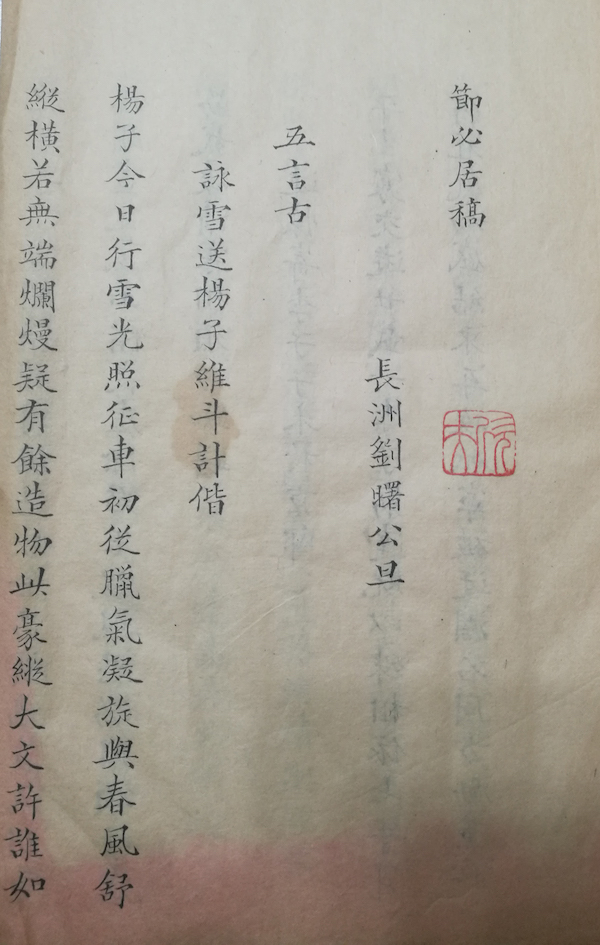 節必居稿
長洲劉曙公旦
五言古
詠雪送楊子維斗計偕
楊子今日行雪光照征車初從臘氣凝旋與春風舒
縱橫若無端爛熳疑有餘造物此豪縱大文許誰如